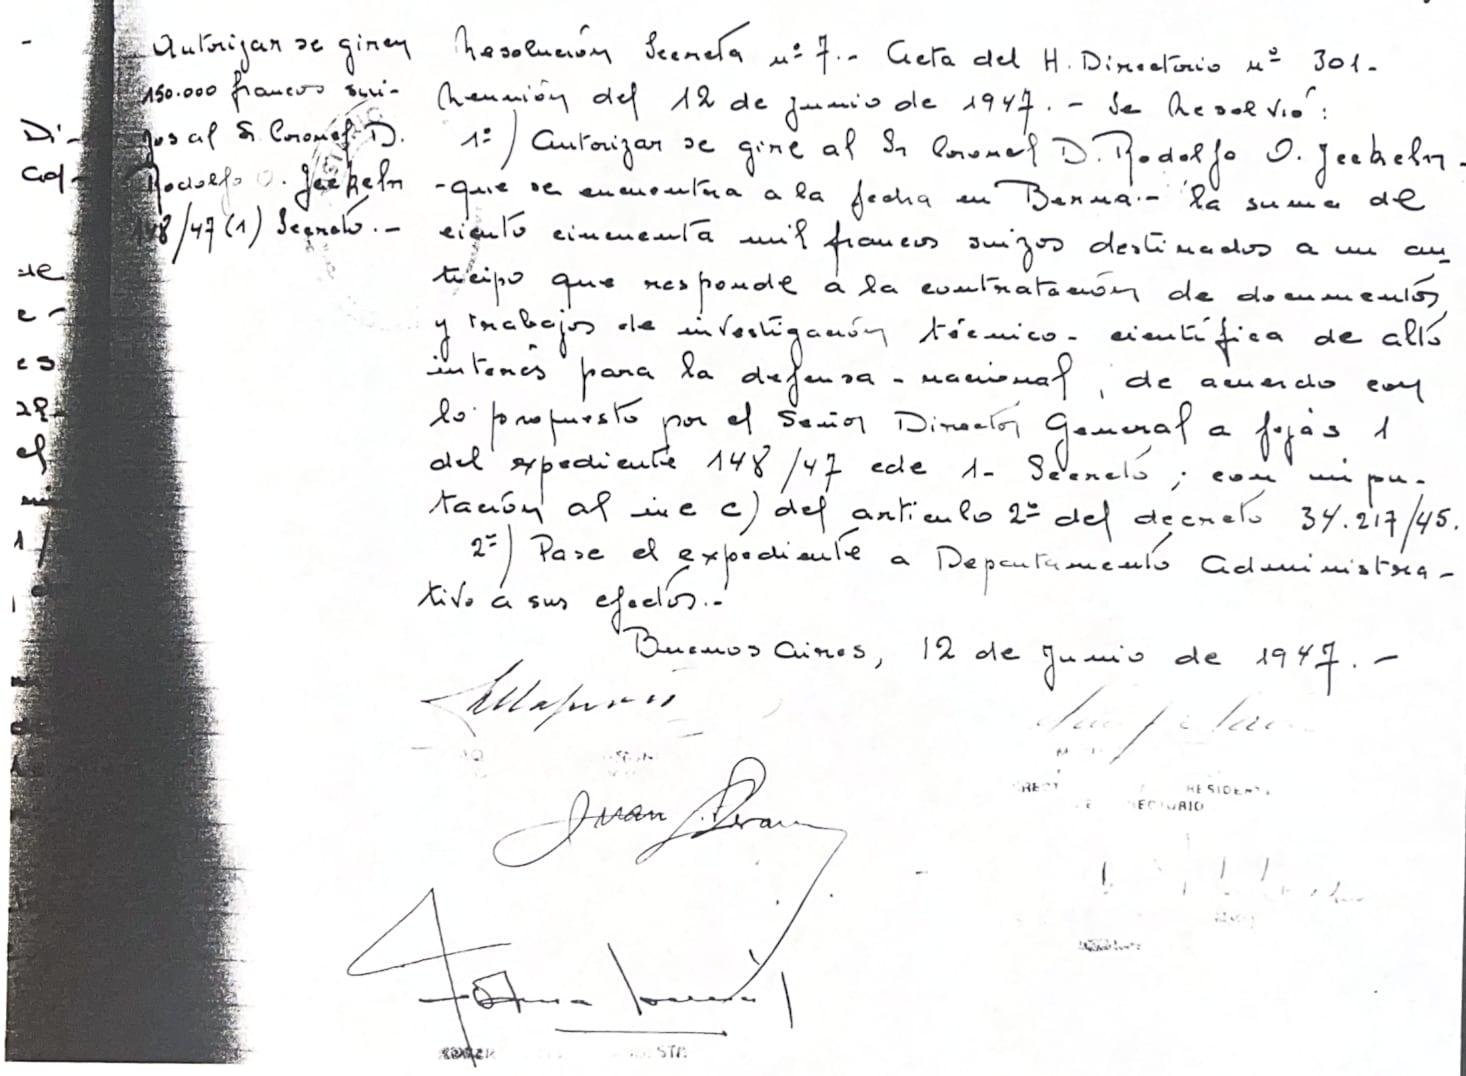 Autorizar se giren
150.000 francos sui-
zos al Sr. Coronel D.
Rodolfo O. Jeckeln
148/47 (1) Secreto.-
Resolución Secreta nº 7.- Acta del H. Directorio nº 301-
Reunión del 12 de junio de 1947.- Se Resolvió:
1º) Autorizar se gire al Sr Coronel D. Rodolfo O. Jeckeln-
-que se encuentra a la fecha en Berna.- la suma de
ciento cincuenta mil francos suizos destinados a un an-
ticipo que responde a la contratación de documentos
y trabajos de investigación técnico-científica de alto
interés para la defensa-nacional, de acuerdo con
lo propuesto por el Señor Director General a fojas 1
del expediente 148/47 cde 1- Secreto; con impu-
tación al inc c) del artículo 2º del decreto 34.217/45.
2º) Pase el expediente a Departamento Administra-
tivo a sus efectos.-
Buenos Aires, 12 de Junio de 1947.-
Juan